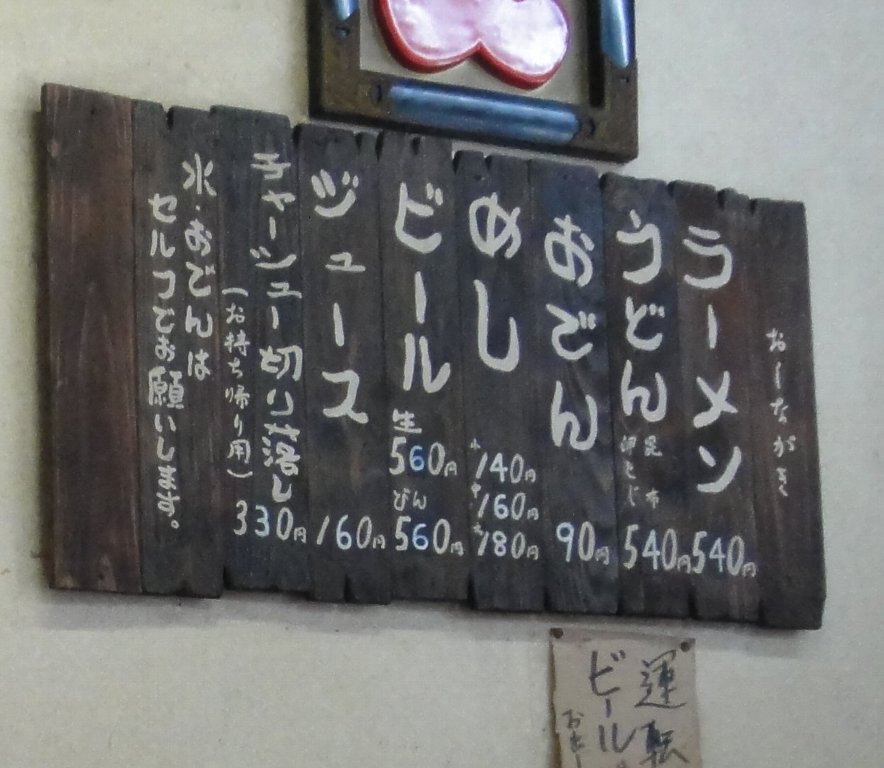 おしながき
ラーメン 540円
うどん 昆布 卵とじ 540円
おでん 90円
めし 小140円 中160円 大180円
ビール 生560円 びん560円
ジュース 160円
チャーシュー切り落し 330円
(お持ち帰り用)
水・おでんは
セルフでお願いします。
運転
ビール
お出し